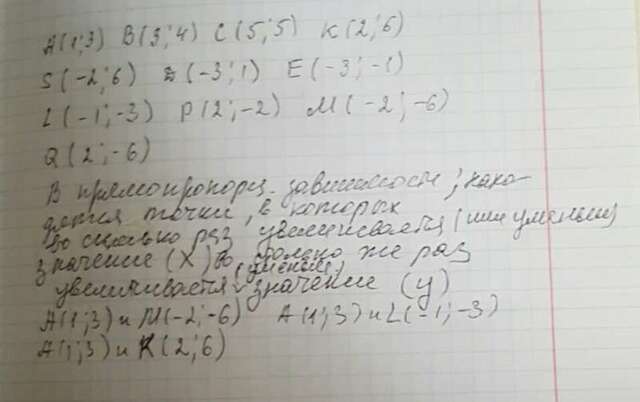 A(1;3) B(3;4) C(5;5) K(2;6)
S(-2;6) D(-3;1) E(-3;-1)
L(-1;-3) P(2;-2) M(-2;-6)
Q(2;-6)
В прямопропорц. зависимости, нахо-
дятся точки, в которых
во сколько раз увеличивается (или уменьш)
значение (X) во столько же раз
увеличивается (уменьш) значение (y)
A(1;3) и M(-2;-6) A(1;3) и L(-1;-3)
A(1;3) и K(2;6)